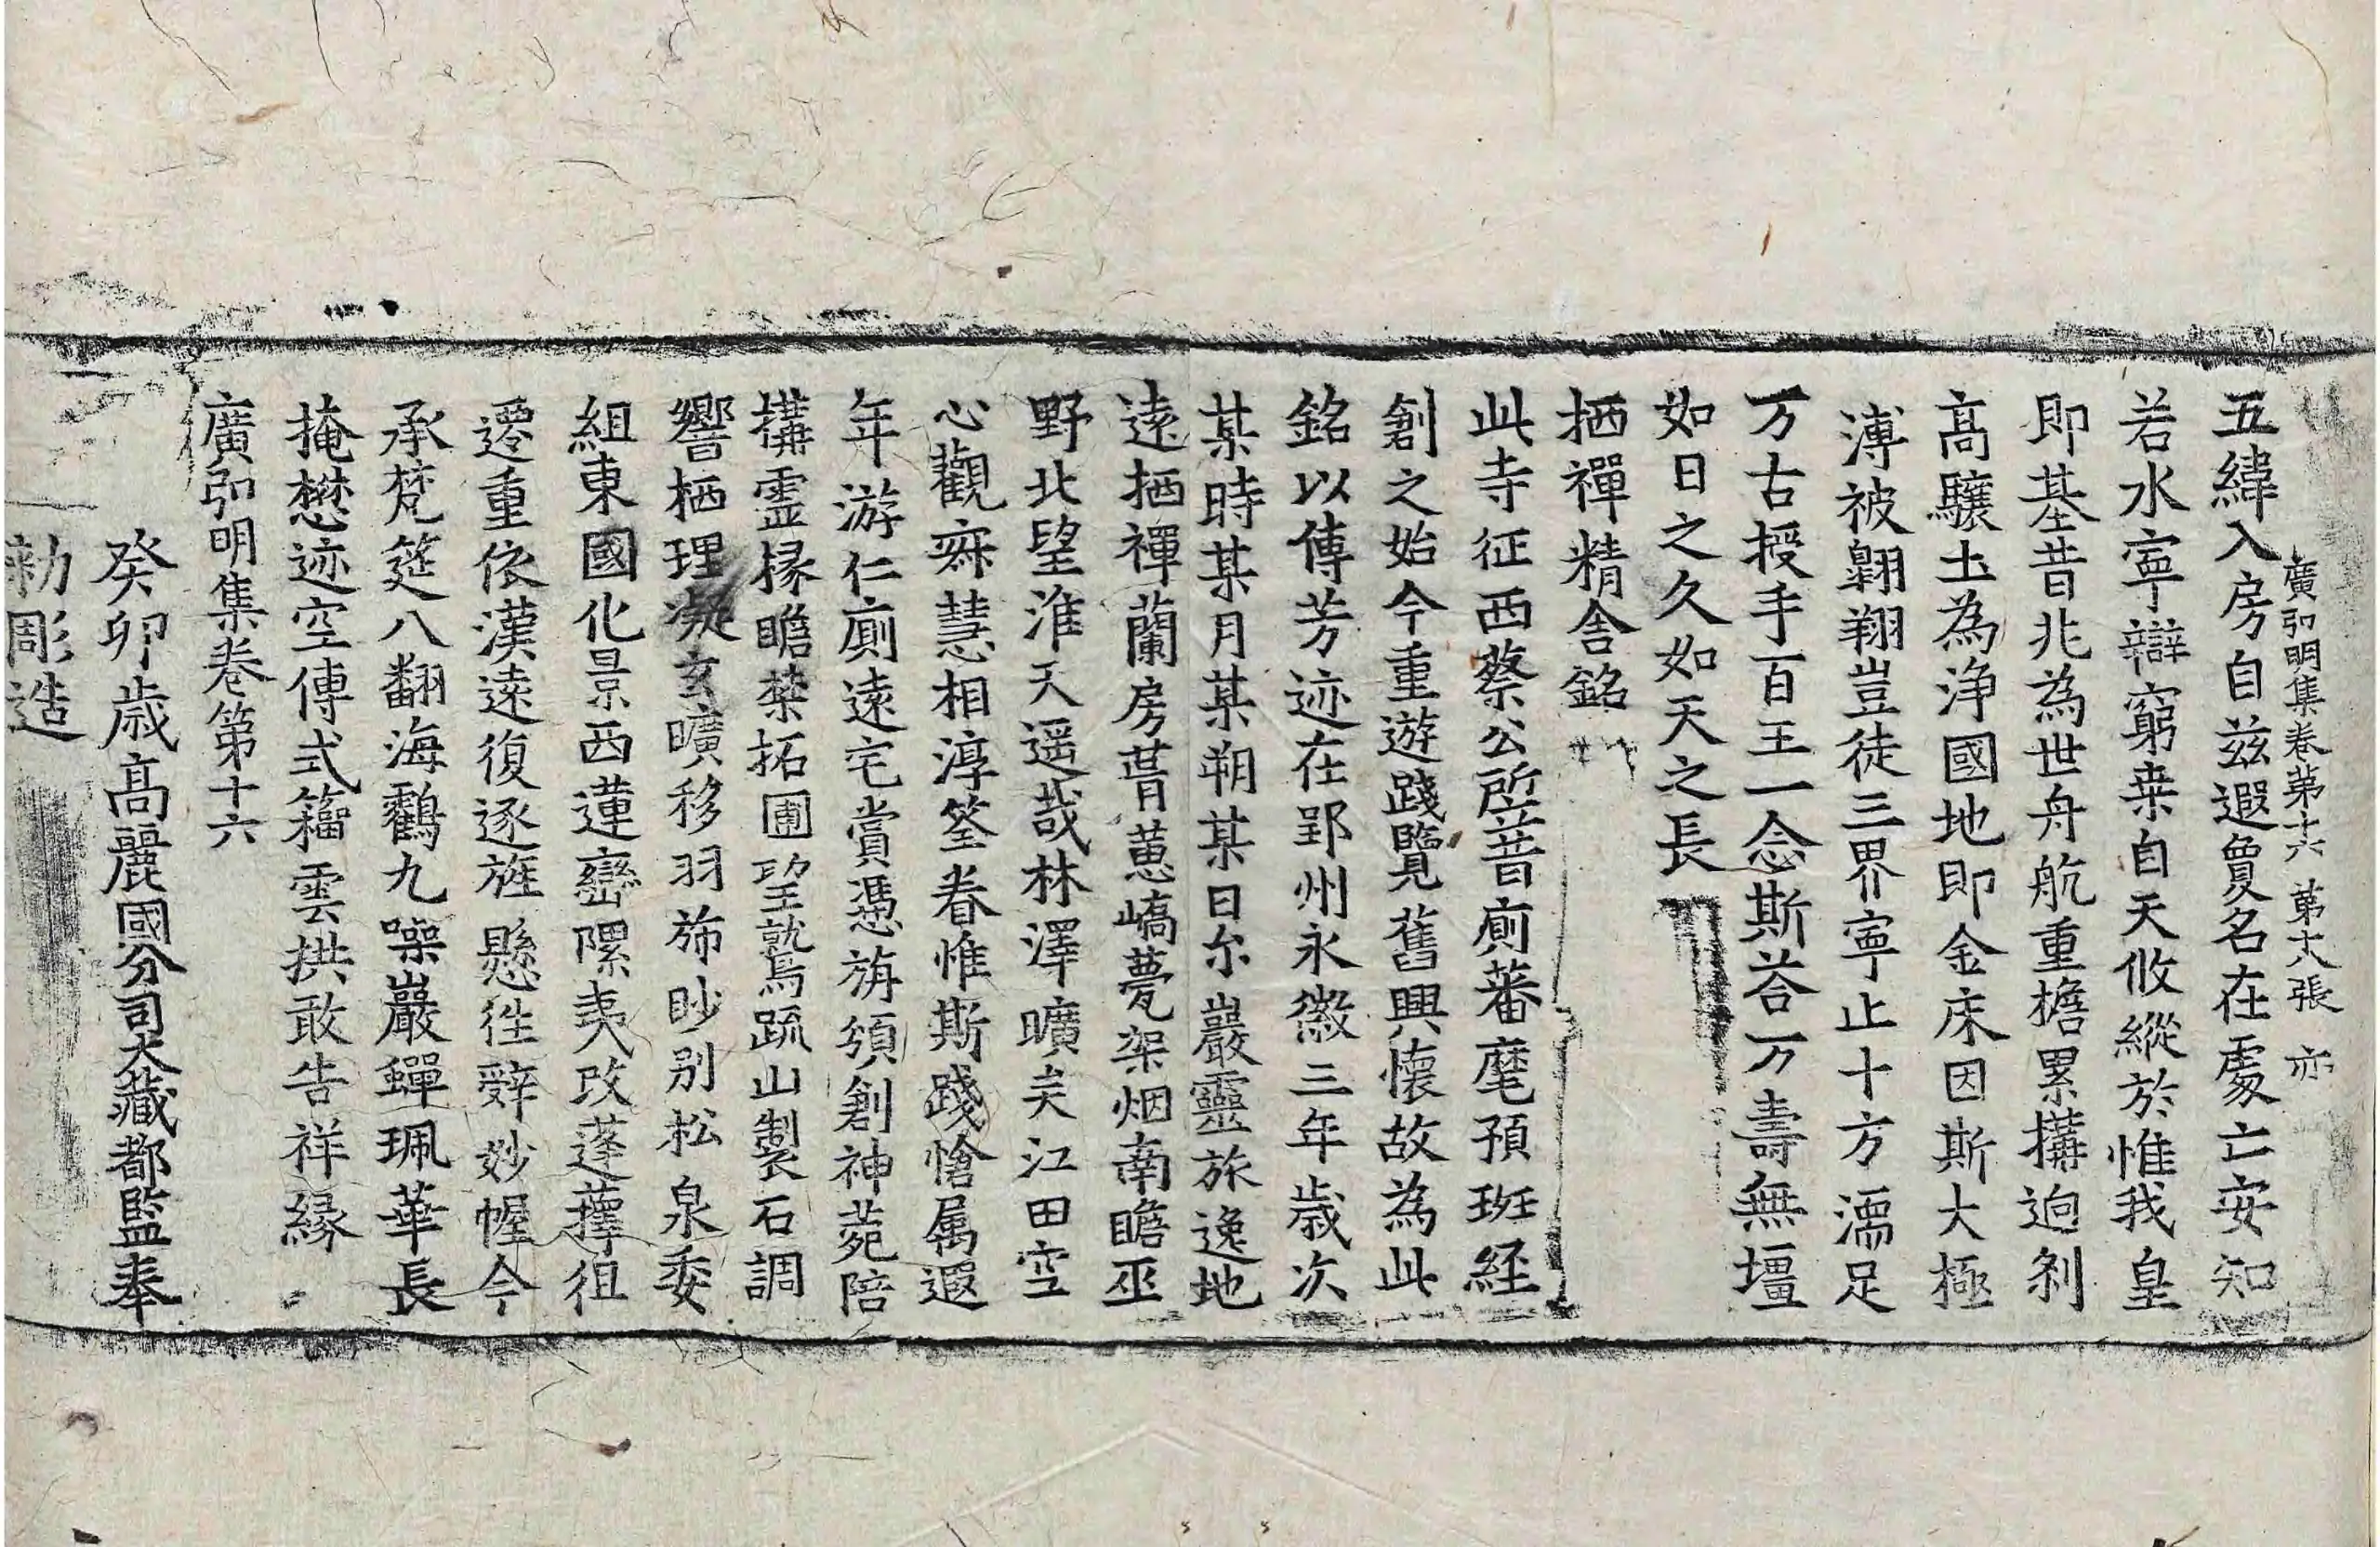 廣弘明集卷第十六 第十六張 亦
五緯入房自兹遐敻名在處亡安知
若水寧辯窮桒自天攸縱於惟我皇
即基昔兆為世舟航重檐累搆迥刹
高驤土為淨國地即金床因斯大極
溥被翺翔豈徒三界寧止十方濡足
万古授手百王一念斯荅万壽無壃
如日之久如天之長
栖禪精舎銘
此寺征西蔡公所昔廁蕃麾預班経
創之始今重遊踐覽舊興懷故為此
銘以傳芳迹在郢州永徽三年歲次
某時某月某朔某日尔巖靈旅逸地
逺栖禪蘭房葺蕙嶠甍架烟南瞻巫
野北望淮天遥哉林澤曠矣江田空
心觀寐慧相淳筌眷惟斯踐愴属遐
年游仁廁逺宅賞憑旃頒創神菀陪
搆霊椽瞻禁拓圃望鷲疏山製石調
響栖理凝玄曠移羽旆眇别松泉委
組東國化景西蓮巒隰夷改蓬蘀徂
遷重依漢逺復逐旌懸徃辤妙幄今
承梵筵八翻海鸛九噪巖蟬珮華長
掩懋迹空傳式籀雲拱敢告祥縁
廣弘明集卷第十六
癸卯歲高麗國分司大藏都監奉
勅彫造